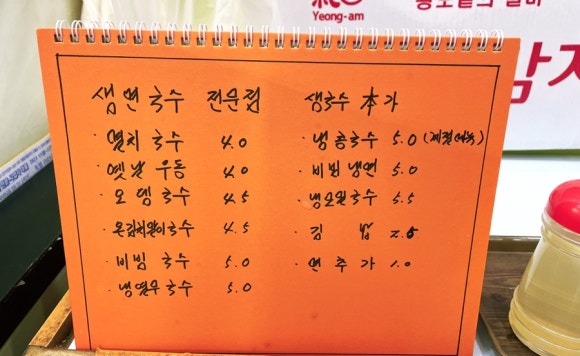 Yeong-am
생면국수 전문점
· 멸치 국수 4.0
· 옛날 우동 4.0
· 오뎅국수 4.5
· 온김치말이국수 4.5
· 비빔 국수 5.0
· 냉열무국수 5.0
생국수 本가
· 냉콩국수 5.0
· 비빔냉면 5.0
· 냉모밀국수 5.5
· 김 밥 2.5
· 면 추 가 1.0